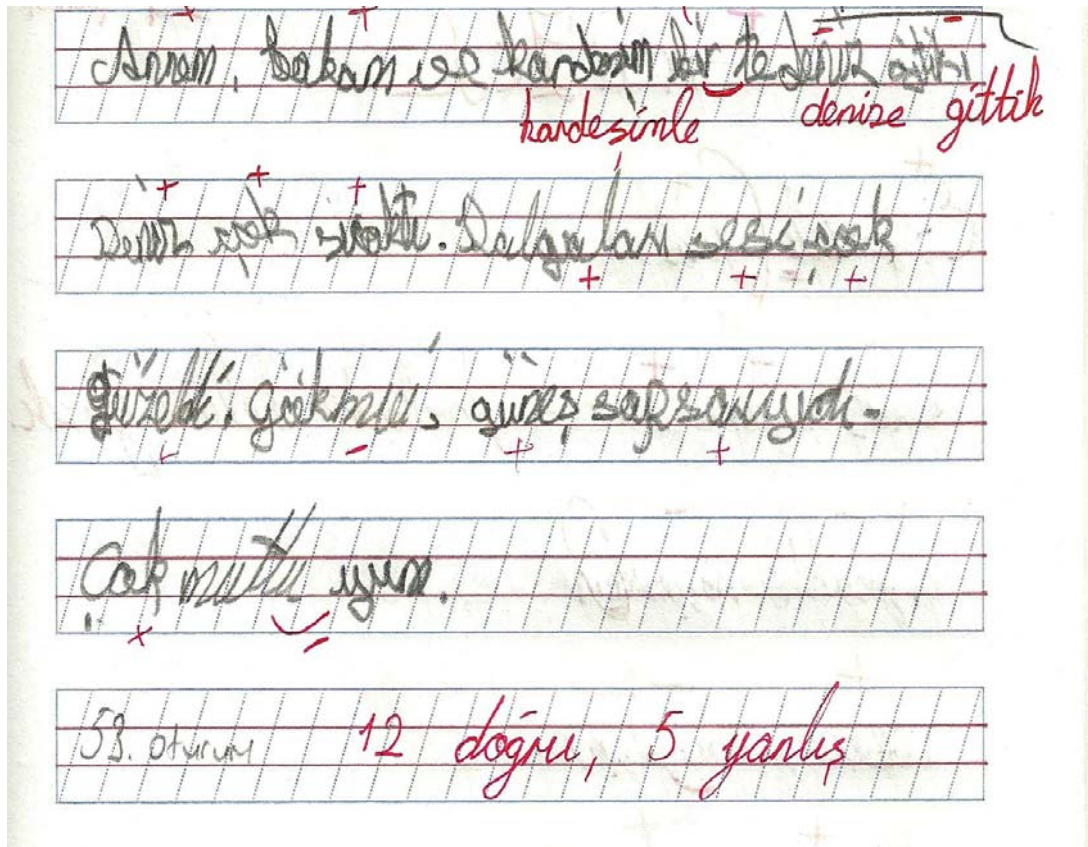 Annem, babam ve kardesim bir te deniz gitik
kardeşimle denize gittik
Deniz çok sıcaktı. Dalgaları sesi çok
güzeldi. Gökmui, güneş sapsarıydı.
Çok mutlu yum.
53. oturum 12 doğru, 5 yanlış